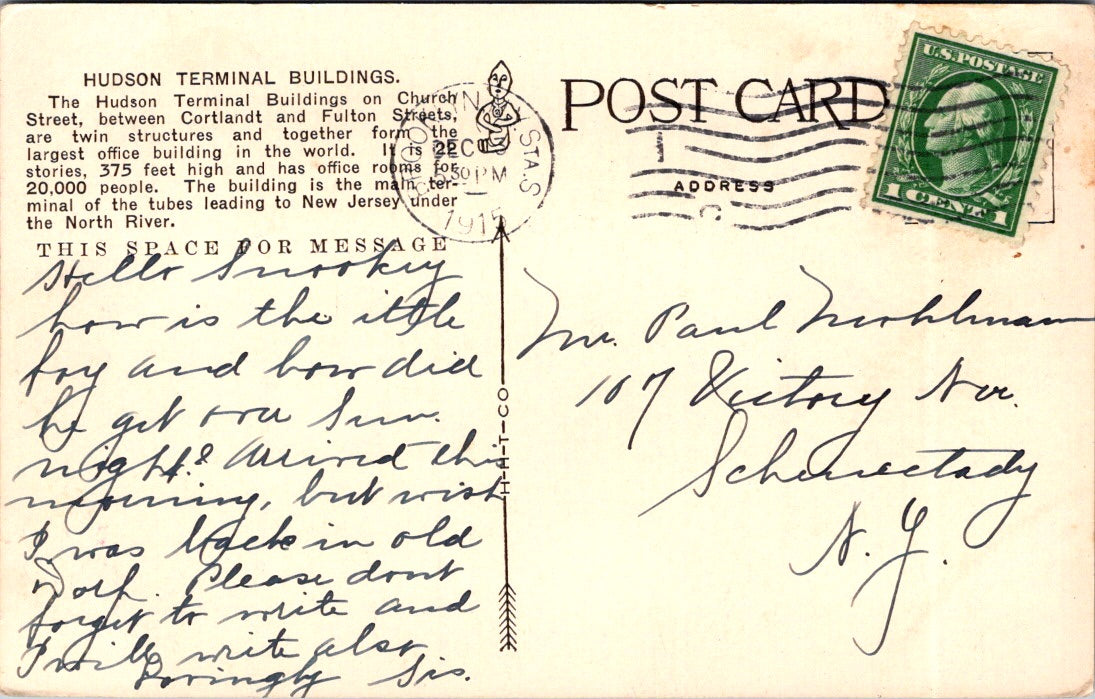 HUDSON TERMINAL BUILDINGS.
The Hudson Terminal Buildings on Church
Street, between Cortlandt and Fulton Streets,
are twin structures and together form the
largest office building in the world. It is 22
stories, 375 feet high and has office rooms for
20,000 people. The building is the main ter-
minal of the tubes leading to New Jersey under
the North River.
THIS SPACE FOR MESSAGE
Hello Snookey
how is the ittle
boy and how did
he get over Sun.
night? Arrived this
morning, but wish
I was back in old
Dorp. Please dont
forget to write and
I will write also
Lovingly Sis.
H-H-T-CO
N.Y. STA.S
DEC
30 PM
1915
POST CARD
ADDRESS
U.S. POSTAGE
1 CENT 1
Mr. Paul
107 Victory Ave.
Schenectady
N.Y.